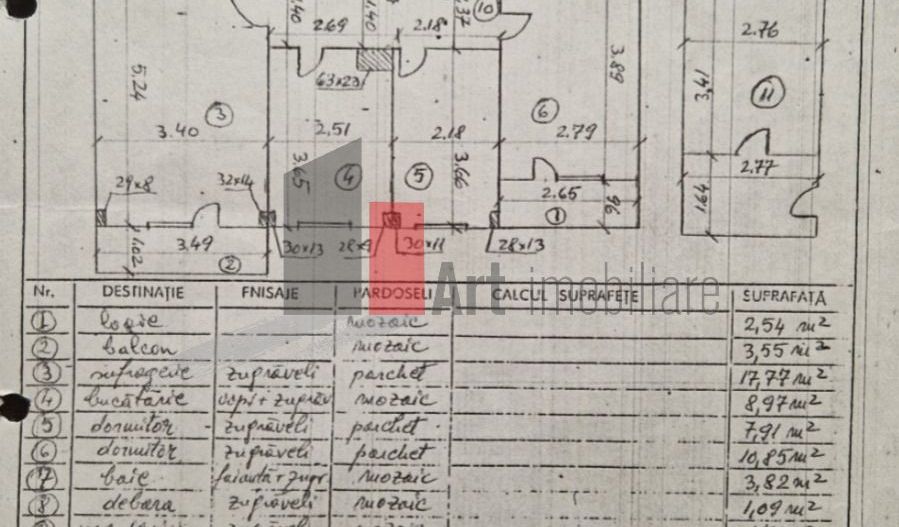 1.40
2.69
1.40
2.18
1.37
10
2.76
63x23
5.24
3
3.89
3.41
11
6
3.40
2.51
2.18
2.79
2.77
3.65
4
5
3.66
29x8
32x14
2.65
96
1
1.64
1.02
3.49
2
30x13
28x9
30x11
28x13
Art imobiliare
Nr. DESTINAȚIE FNISAJE PARDOSELI CALCUL SUPRAFEȚE SUPRAFAȚĂ
1 logie mozaic 2,54 m²
2 balcon mozaic 3,55 m²
3 sufragerie zugrăveli parchet 17,77 m²
4 bucătărie vops+zugrăv mozaic 8,97 m²
5 dormitor zugrăveli parchet 7,91 m²
6 dormitor zugrăveli parchet 10,85 m²
7 baie faianță+zugr. mozaic 3,82 m²
8 debara zugrăveli mozaic 1,09 m²